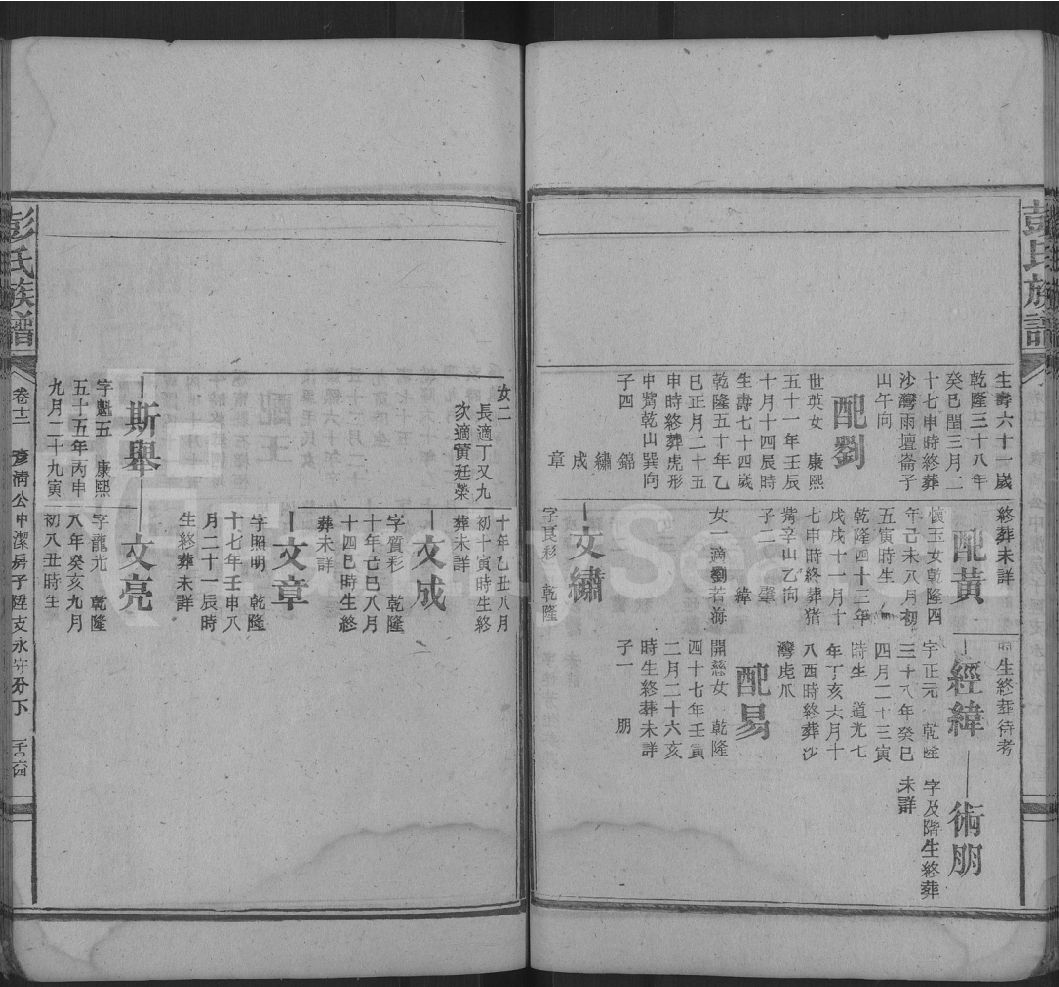 彭氏族譜
生壽六十一歲
乾隆三十八年
癸巳閏三月二
十七申時終葬
沙灣雨壇崙子
山午向
配劉
世英女 康熙
五十一年壬辰
十月十四辰時
生壽七十四歲
乾隆五十年乙
巳正月二十五
申時終葬虎形
中嘴乾山巽向
子四 錦繡成章
女二
長適丁又九
次適黃廷榮
斯舉
字魁五 康熙
五十五年丙申
九月二十九寅
終葬未詳
配黃
懷玉女乾隆四
年己未八月初
五寅時生
乾隆四十三年
戊戌十一月十
七申時終葬猪
嘴辛山乙向
子二 肇緯
女一適劉若海
文繡
字長彩 乾隆
十年乙丑八月
初十寅時生終
葬未詳
文成
字質彩 乾隆
十年己巳八月
十四巳時生終
葬未詳
文章
字照明 乾隆
十七年壬申八
月二十一辰時
生終葬未詳
文亮
字龍光 乾隆
八年癸亥九月
初八丑時生
時生終葬待考
經緯
字正元 乾隆
三十八年癸巳
四月二十三寅
時生 道光七
年丁亥六月十
八酉時終葬沙
灣虎爪
配易
開慈女 乾隆
四十七年壬寅
二月二十六亥
時生終葬未詳
子一 朋
術朋
字及階生終葬
未詳
彭氏族譜
卷十二 彥清公中潔房子陞支永
下